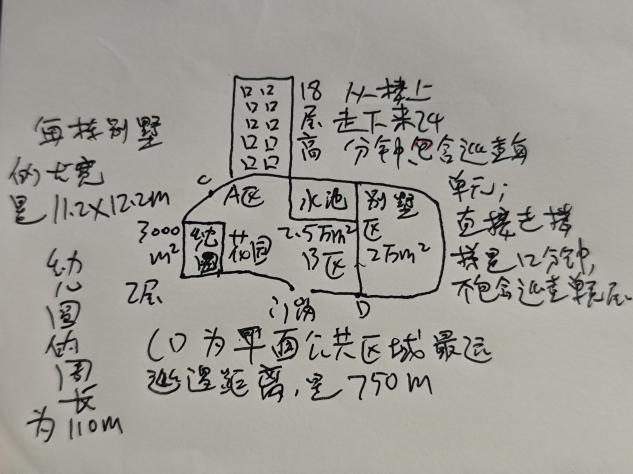 18 从楼上
层 走下来24
高 分钟包含巡查每
单元;
直接走楼
梯是12分钟,
不包含巡查单元层
每栋别墅
的长宽
是11.2×12.2m
C
A区
水池
别墅
区
2万m²
3000
m²
幼
园
花园
2.5万m²
B区
2层
门岗
D
幼
儿
园
的
周
长
为110m
CD为平面公共区域最远
巡逻距离,是750m